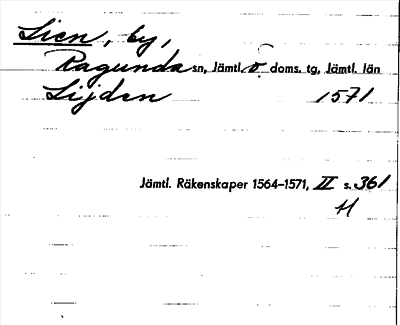 Lien, by,
Ragunda sn, Jämtl. ö. doms. tg, Jämtl. län
Lijden 1571
Jämtl. Räkenskaper 1564–1571, II s. 361
H